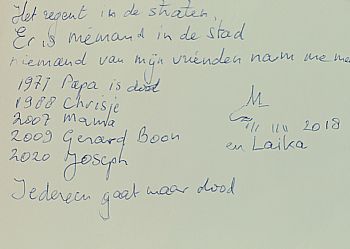 Het regent in de straten,
Er is niemand in de stad
niemand van mijn vrienden nam me
1971 Papa is dood
1988 Chrisje
2007 Mama
2009 Gerard Boon
2020 Joseph
2018
en Laika
Iedereen gaat maar dood